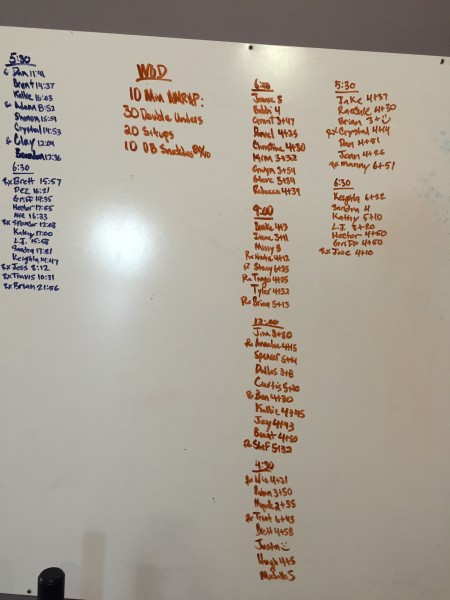 5:30
& Dan 11:41
Brent 14:37
Kallie 16:03
& Adam 8:52
Shanon 16:59
Crystal 14:53
& Clay 12:04
Brandon 12:36
6:30
Rx Brett 15:57
Dez 16:21
Griff 14:35
Hector 17:55
Nic 16:33
Rx Spencer 12:08
Kathy 17:00
L.J. 15:58
Sandra 17:21
Keighla 14:47
Rx Jess 8:12
Rx Travis 10:31
Rx Brian 21:56
WOD
10 Min AMRAP:
30 Double Unders
20 Situps
10 DB Snatches
6:00
Bobbi 4
Grant 3+47
Daniel 4+25
Christine 4+30
3+32
3+54
Steve 3+34
Rebecca 4+39
9:00
3+11
Missy 3
Rx 4+12
Stacy 6+25
Rx 4+25
Tyler 4+32
Rx Briana 5+13
12:00
Jim 3+20
Rx Annalee 4+15
Spencer 5+14
Dallas 3+8
Curtis 5+20
Rx Ben 4+20
Kallie 4+45
Jay 4+43
Brent 4+50
Rx Stef 5+32
4:30
Rx Nic 4+21
3+50
2+35
Rx Trent 6+43
Brett 4+58
Justin
4+5
5
5:30
Jake 4+37
Rachele 4+30
Brian 3+
Rx Crystal 4+14
Dan 4+51
John 4+26
Rx Manny 6+51
6:30
Keighla 6+22
Sandra 4
Kathy 5+10
L.J. 5+20
Hector 4+50
Griff 4+50
Rx Jose 4+10